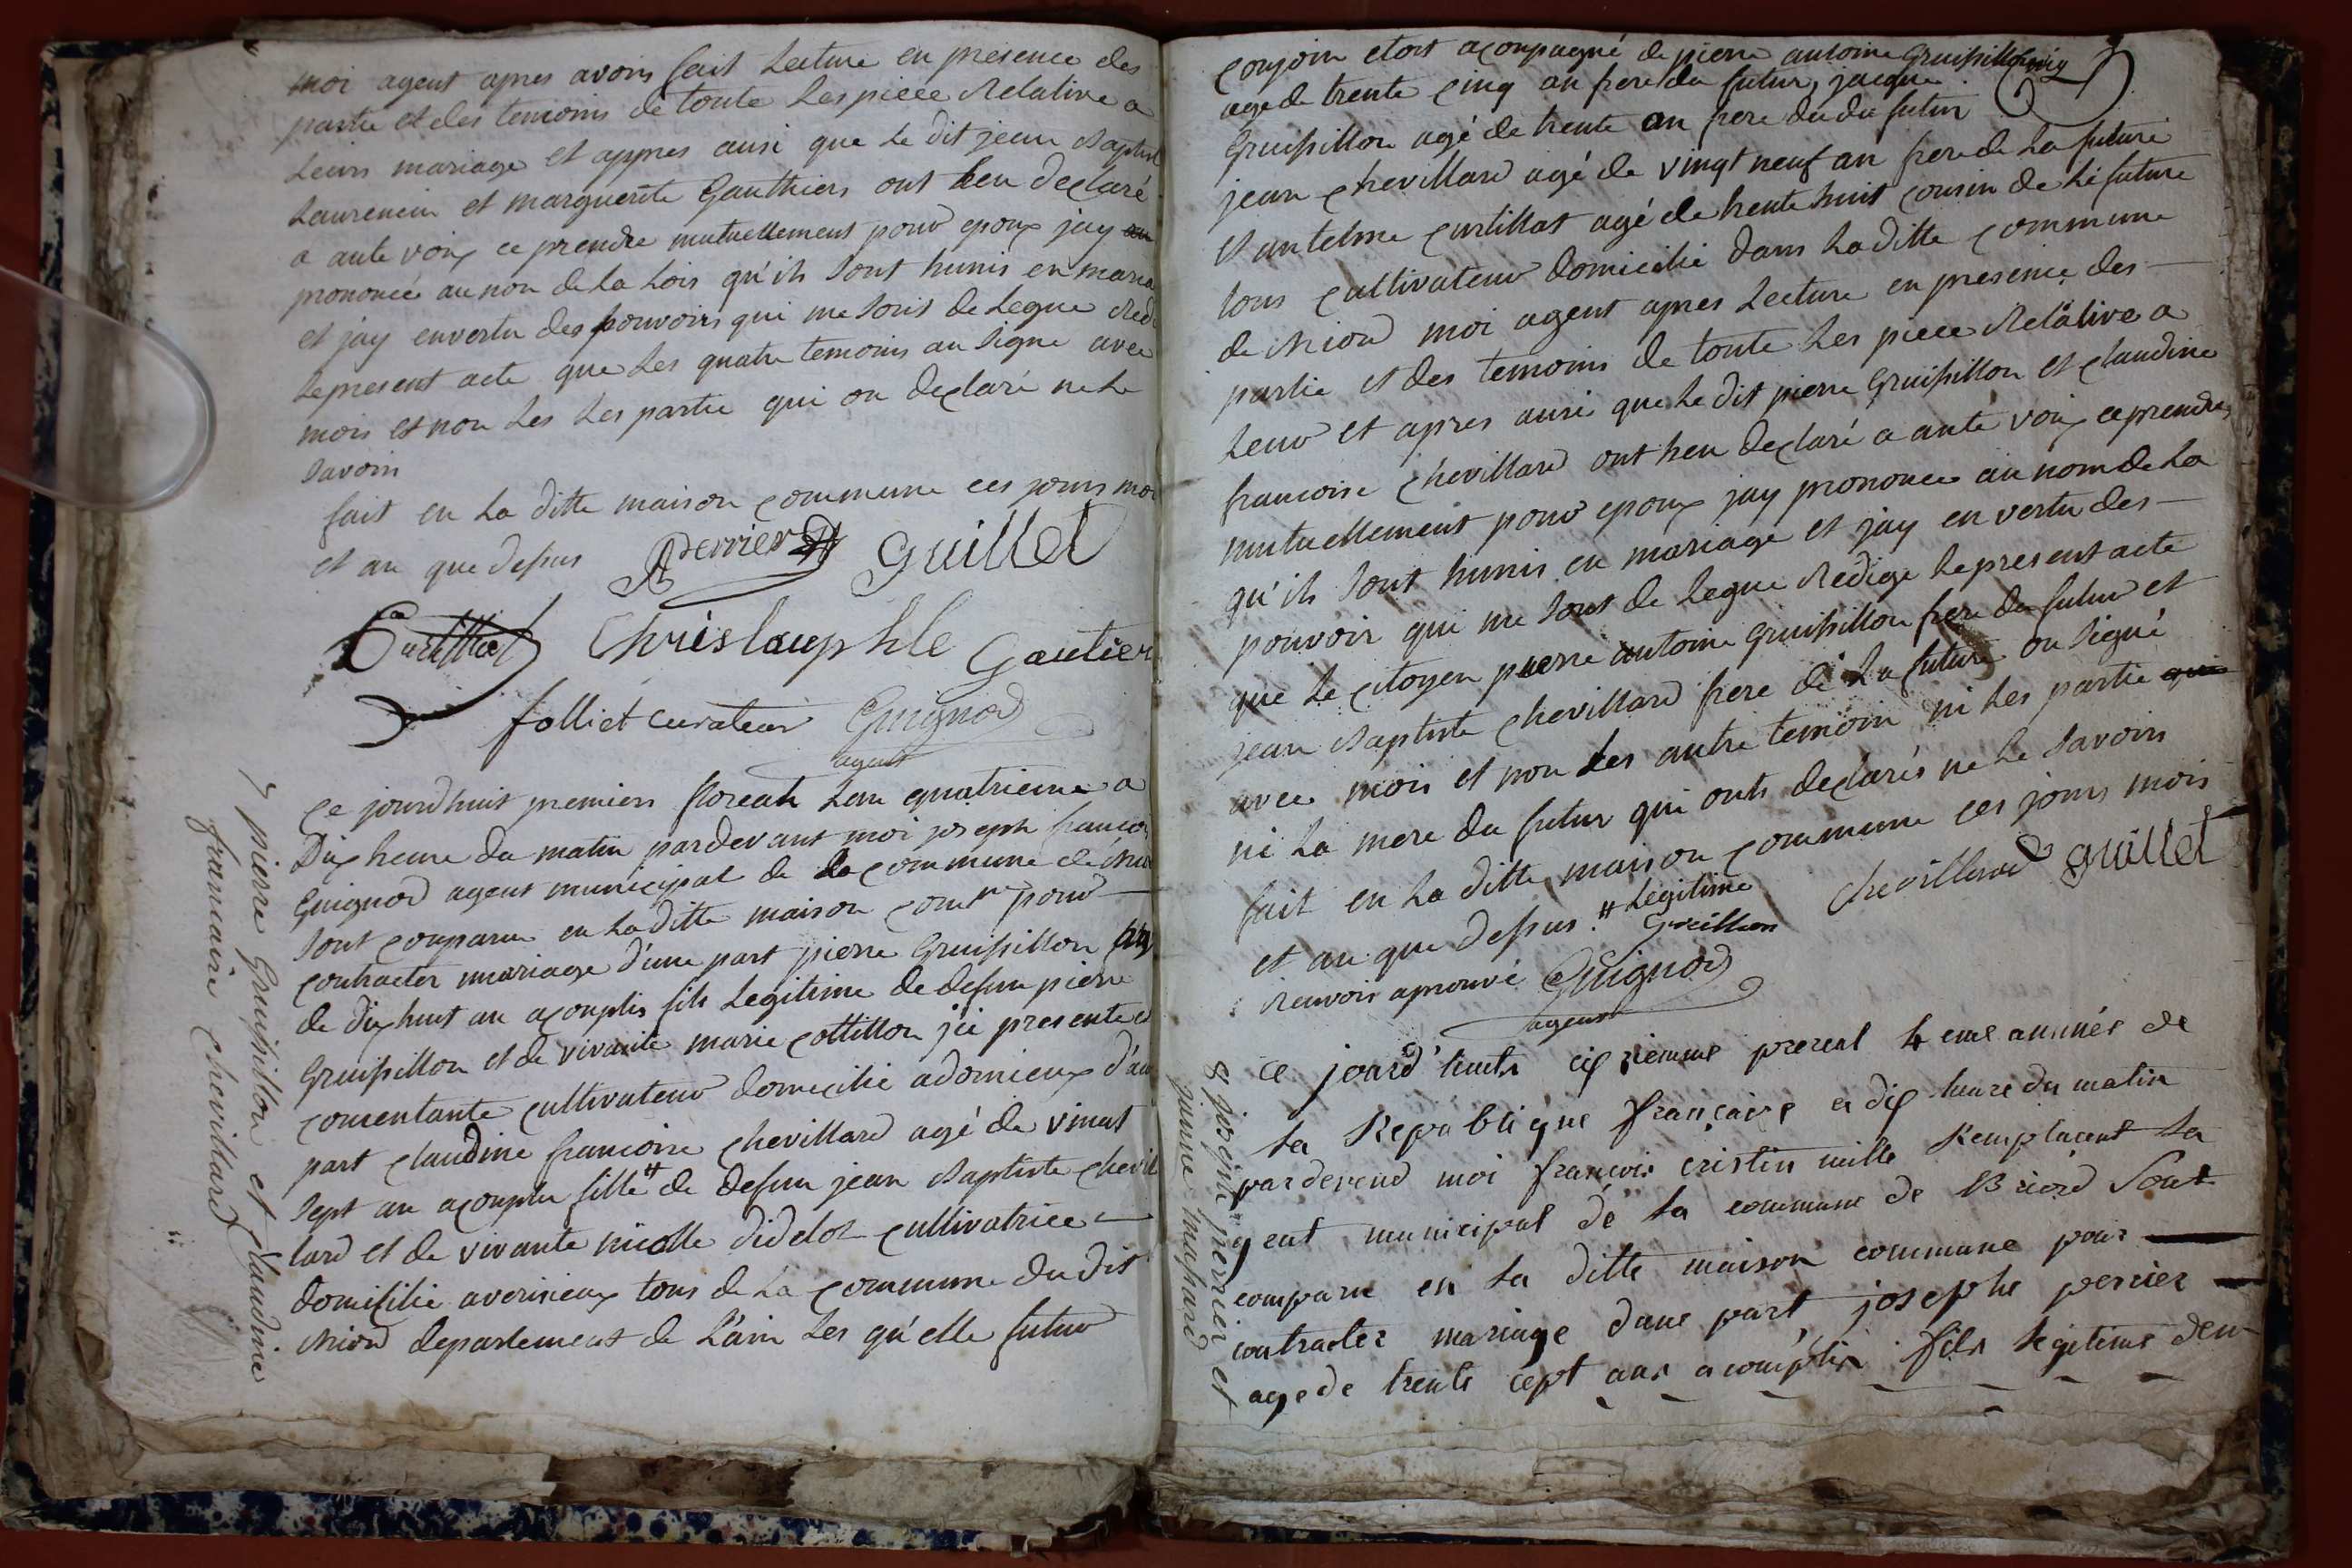 moi agent apres avoirs fait Lecture en presence des
partie et des temoins de toute Les piece Relative a
Leurs mariage et appres ausi que Le dit jean Baptist
Laurencin et marguerite Gauthiers ont heu declaré
a aute voix ce prendre mutuellement pour epoux jay
prononcée au non de La Lois qu'ils sont hunis en maria
et jay envertu des pouvoirs qui me sont de Legue Redi
Le present acte que Les quatre temoins an signe avec
mois et non Les Les partie qui on declaré ne Le
savoirs
fait en La ditte maison commune ces jours mois
et an que dessus Perrier Guillet
Curtilliat Christouphle Gautier
folliet curateur Guignod
agent
7 pierre Gruissillon et Claudine
francaise chevillard
Ce jourdhuit premiers floreals Lan quatrieme a
Dix heure du matin pardevant moi joseph francois
Guignod agent municipal de La commune de Briord
sont comparu en La ditte maison comne pour
contracter mariage d'une part pierre Gruissillon agé
de dixhuit an acomplis fils Legitime de defun pierre
Gruissillon et de vivante marie cottillon jci presente et
consentante cultivateur domicilié adornieux d'autre
part Claudine francoise chevillard agé de vingt
sept an acomplu fille # de defun jean Baptiste chevil
lard et de vivante nicolle didelot cultivatrice
domisilié averisieux tous de La commune du dit
Briord departement de L'ain Les qu'elle futur
conjoin etoit acompagné de pierre antoine Gruissillon
age de trente cinq an frere du futur, jacque
Gruissillon agé de trente an frere du du futur
jean chevillard agé de vingt neuf an frere de La future
et antelme curtillat agé de trente huit cousin de Lá future
tous cultivateur domicilié dans La ditte commune
de Briord moi agent apres Lecture en presence des
partie et des temoins de toute Les piece Relative a
Leur et apres ausi que Le dit pierre Gruissillon et claudine
francoise chevillard ont heu declaré a aute voix ce prendre
mutuellement pour epoux jay prononcé au nom de La
qu'ils sont hunis en mariage et jay en vertu des
pouvoir qui me sont de Legue Redige Le present acte
que Le citoyen pierre antoine Gruissillon frere du futur et
jean Baptiste chevillard frere de La future on signé
avec mois et non Les autre temoin ni Les partie qui
ni La mere du futur qui onts declarés ne Le savoirs
fait en La ditte maison commune ces jours mois
et an que dessus. # Legitime chevillard Guillet
renvois aprouvé Guignod
agent
8 joseph perrier et
ce jourd'huits prereal 4eme année de
La Republique française a dix heure du matin
pardevend moi françois cristin nille Remplacent La
gent municipal de La commune de Briord sont
comparu en La ditte maison commune pour
contracter mariage dune part josephe perrier
age de trente cept ans acomplis fils Legitime deu